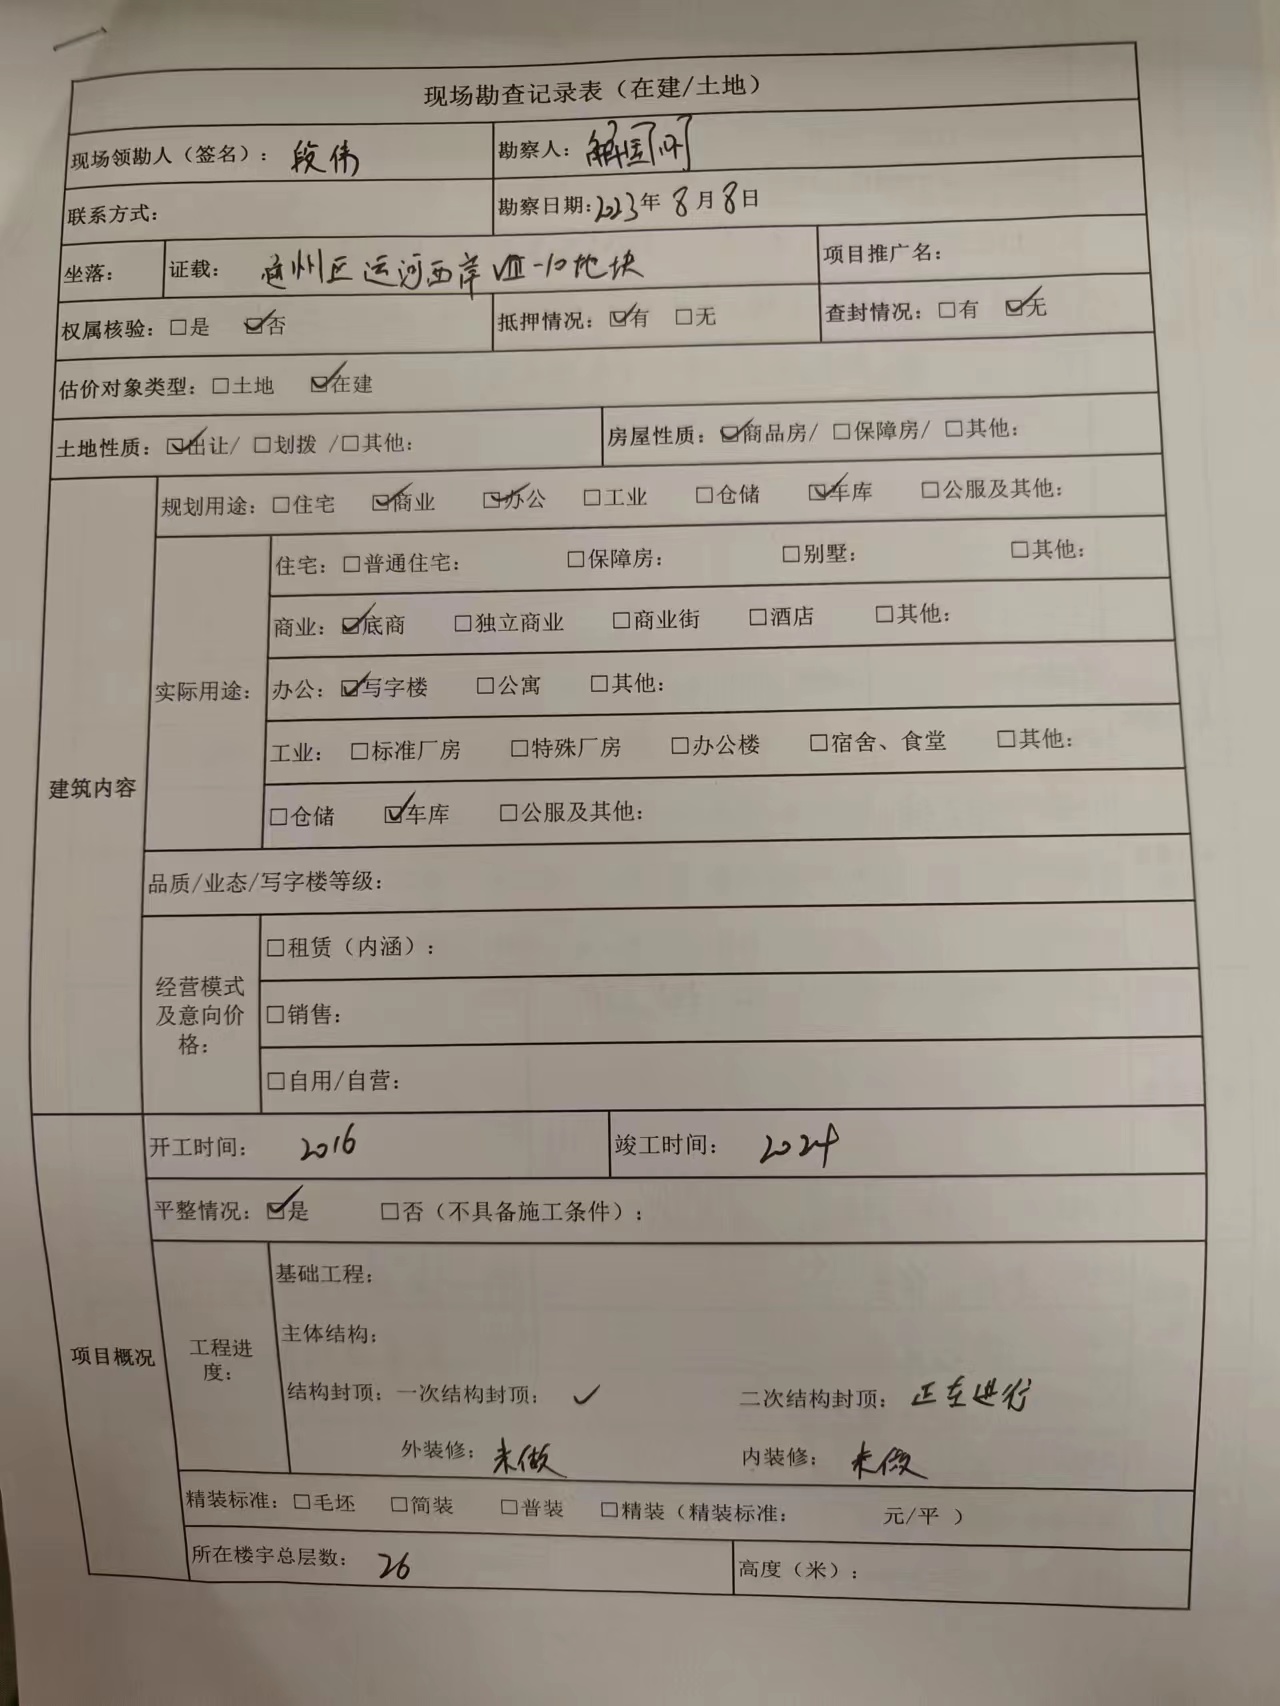 现场勘查记录表（在建/土地）
现场领勘人（签名）：段伟 勘察人：解
联系方式： 勘察日期：2023年 8月8日
坐落： 证载：通州区运河西岸Ⅷ-10地块 项目推广名：
权属核验：□是 ☑否 抵押情况：☑有 □无 查封情况：□有 ☑无
估价对象类型：□土地 ☑在建
土地性质：☑出让/ □划拨 /□其他： 房屋性质：☑商品房/ □保障房/ □其他：
建筑内容
规划用途：□住宅 ☑商业 ☑办公 □工业 □仓储 ☑车库 □公服及其他：
实际用途：
住宅：□普通住宅： □保障房： □别墅： □其他：
商业：☑底商 □独立商业 □商业街 □酒店 □其他：
办公：☑写字楼 □公寓 □其他：
工业： □标准厂房 □特殊厂房 □办公楼 □宿舍、食堂 □其他：
□仓储 ☑车库 □公服及其他：
品质/业态/写字楼等级：
经营模式
及意向价
格：
□租赁（内涵）：
□销售：
□自用/自营：
项目概况
开工时间： 2016 竣工时间： 2024
平整情况：☑是 □否（不具备施工条件）：
工程进
度：
基础工程：
主体结构：
结构封顶：一次结构封顶： ✓ 二次结构封顶：正在进行
外装修：未做 内装修：未做
精装标准：□毛坯 □简装 □普装 □精装（精装标准： 元/平 ）
所在楼宇总层数： 26 高度（米）：